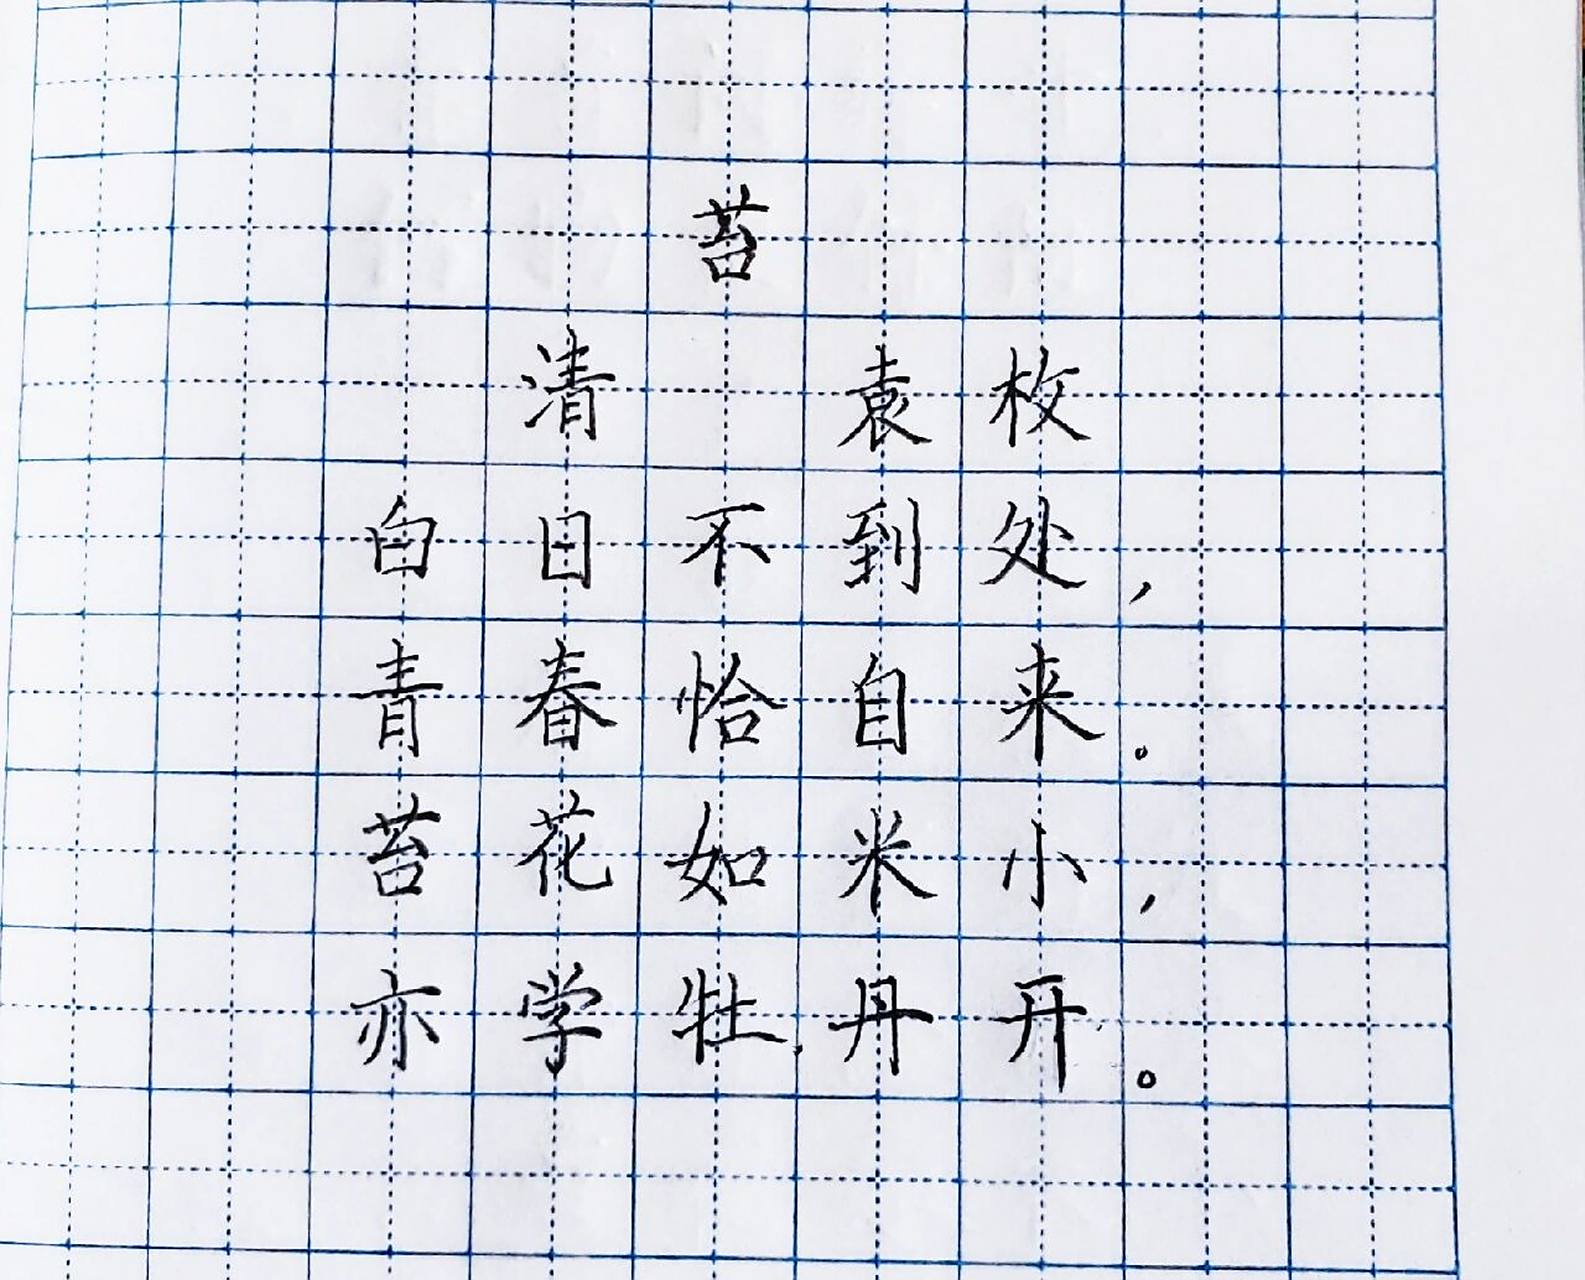 苔
清 袁枚
白日不到处，
青春恰自来。
苔花如米小，
亦学牡丹开。